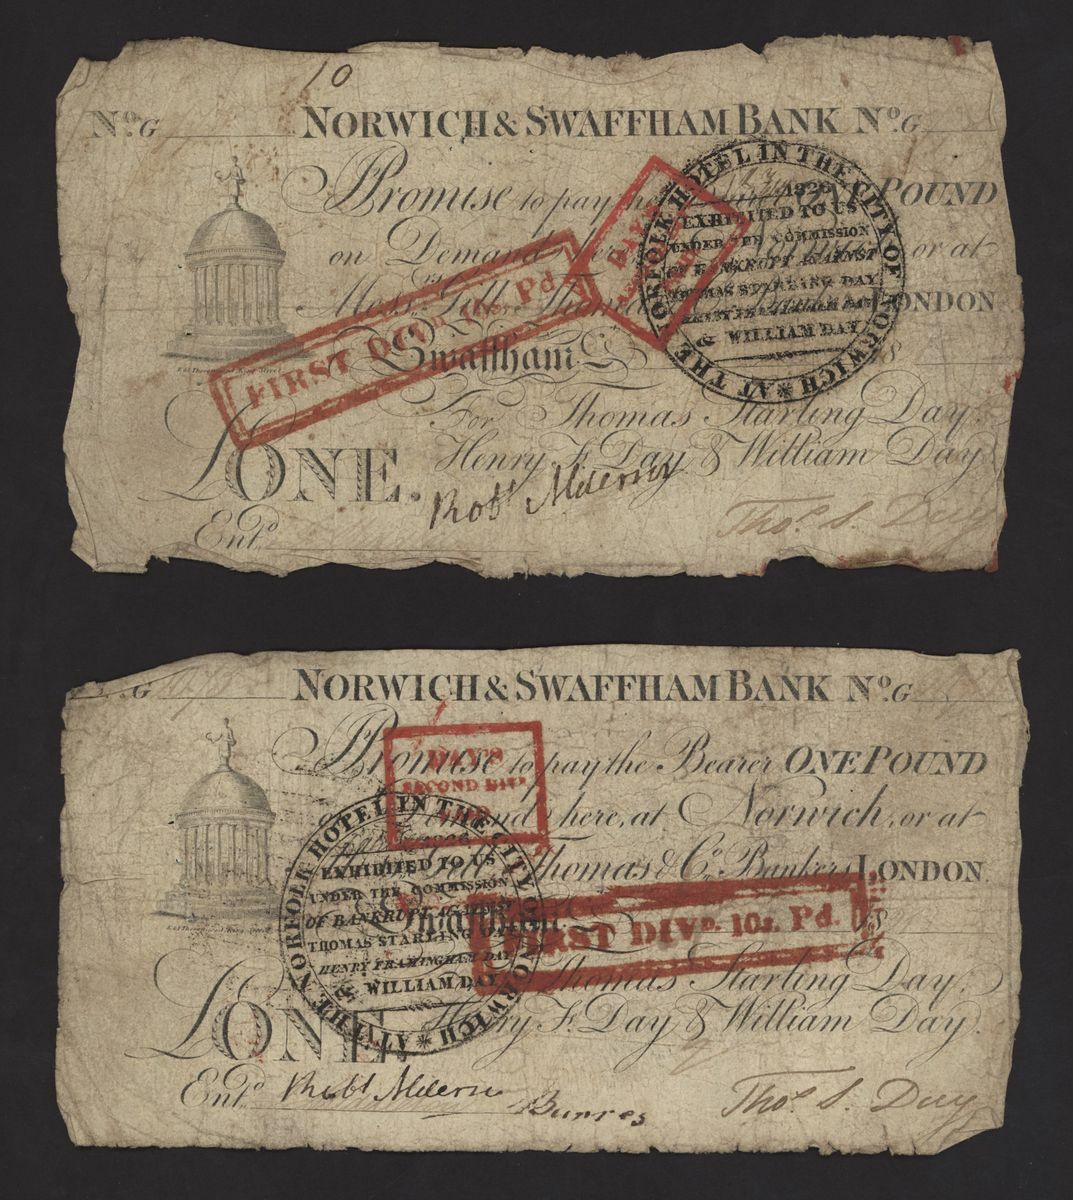 10
No. G NORWICH & SWAFFHAM BANK No. G
Promise to pay the ONE POUND
on Demand or at
Thomas LONDON
Swaffham
For Thomas Starling Day,
Henry F. Day & William Day
ONE.
Robt Alderson
Entd. Thos. S. Day
FIRST DIVD. 10s. Pd.
DAY'S
AT THE NORFOLK HOTEL IN THE CITY OF NORWICH
EXHIBITED TO US
UNDER THE COMMISSION
OF BANKRUPT AGAINST
THOMAS STARLING DAY
HENRY FRAMINGHAM DAY
& WILLIAM DAY
G NORWICH & SWAFFHAM BANK No. G
Promise to pay the Bearer ONE POUND
here, at Norwich, or at
Thomas & Co. Bankers LONDON.
Swaffham
Thomas Starling Day,
Henry F. Day & William Day.
ONE
Entd. Robt Alderson Thos. S. Day
DAY'S
SECOND DIVD.
AT THE NORFOLK HOTEL IN THE CITY OF NORWICH
EXHIBITED TO US
UNDER THE COMMISSION
OF BANKRUPT AGAINST
THOMAS STARLING DAY
HENRY FRAMINGHAM DAY
& WILLIAM DAY
FIRST DIVD. 10s. Pd.